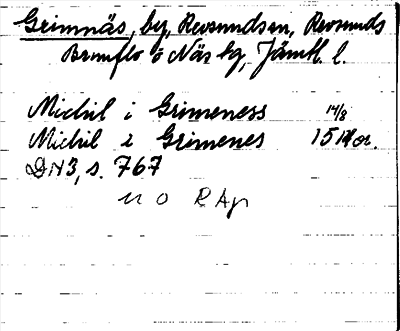 Grimnäs, by, Revsunds sn, Revsunds
Brunflo o Näs tg, Jämtl. l.
Michil i Grimeness 14/8
Michil i Grimenes 15 
DN 3, s. 767
n o RAp